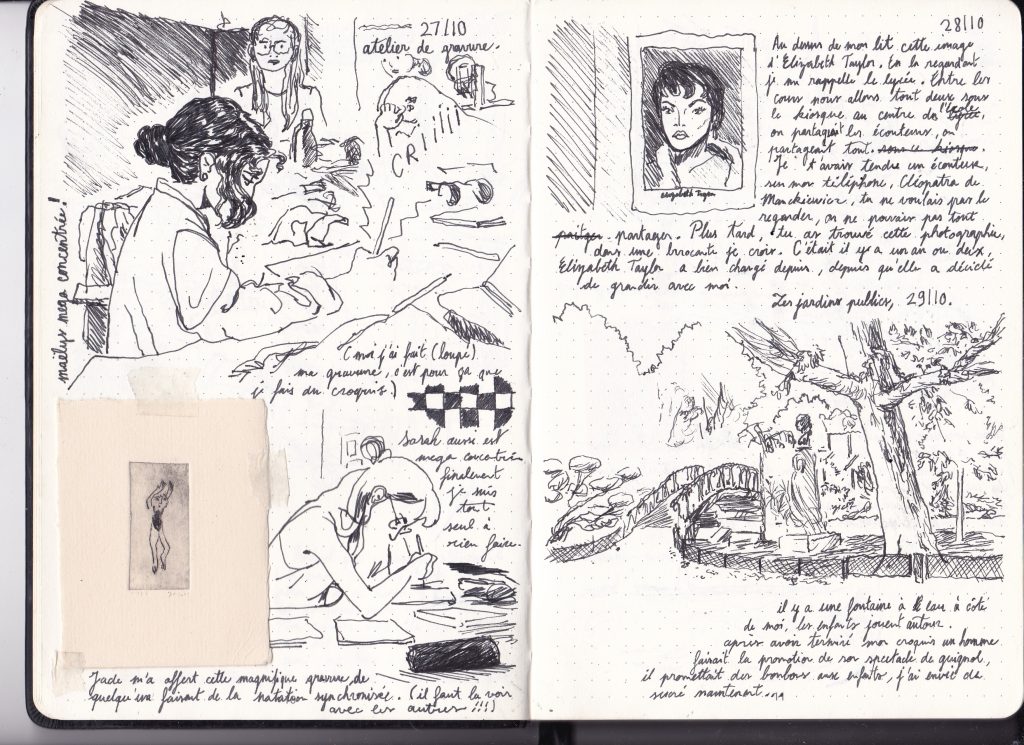 27/10
atelier de gravure.
CRiiiii
maëlys mega concentrée!
(moi j'ai fait (loupé)
ma gravure, c'est pour ça que
je fais du croquis.)
Sarah aussi est
mega concentrée
finalement
je suis
tout
seul à
rien faire.
Jade m'a offert cette magnifique gravure, de
quelqu'un faisant de la natation synchronisée. (il faut la voir
avec les autres !!!)
28/10
Au dessus de mon lit cette image
d'Elizabeth Taylor. En la regardant
je me rappelle le lycée. Entre les
cours nous allons tout deux sous
le kiosque au centre de l'école
lycée,
on partageait les écouteurs, on
partageait tout. sous ce kiosque.
Je t'avais tendu un écouteur,
sur mon téléphone, Cléopatra de
Manckiewicz, tu ne voulais pas le
regarder, on ne pouvais pas tout
partager. Plus tard, tu as trouvé cette photographie,
dans une brocante je crois. C'était il y a un an ou deux,
Elizabeth Taylor a bien changé depuis, depuis qu'elle a décidé
de grandir avec moi.
Elizabeth Taylor
Les jardins publics, 29/10.
il y a une fontaine à eau à côté
de moi, les enfants jouent autour.
après avoir terminé mon croquis un homme
faisait la promotion de son spectacle de guignol,
il promettait des bonbons aux enfants, j'ai envie de
sucré maintenant...